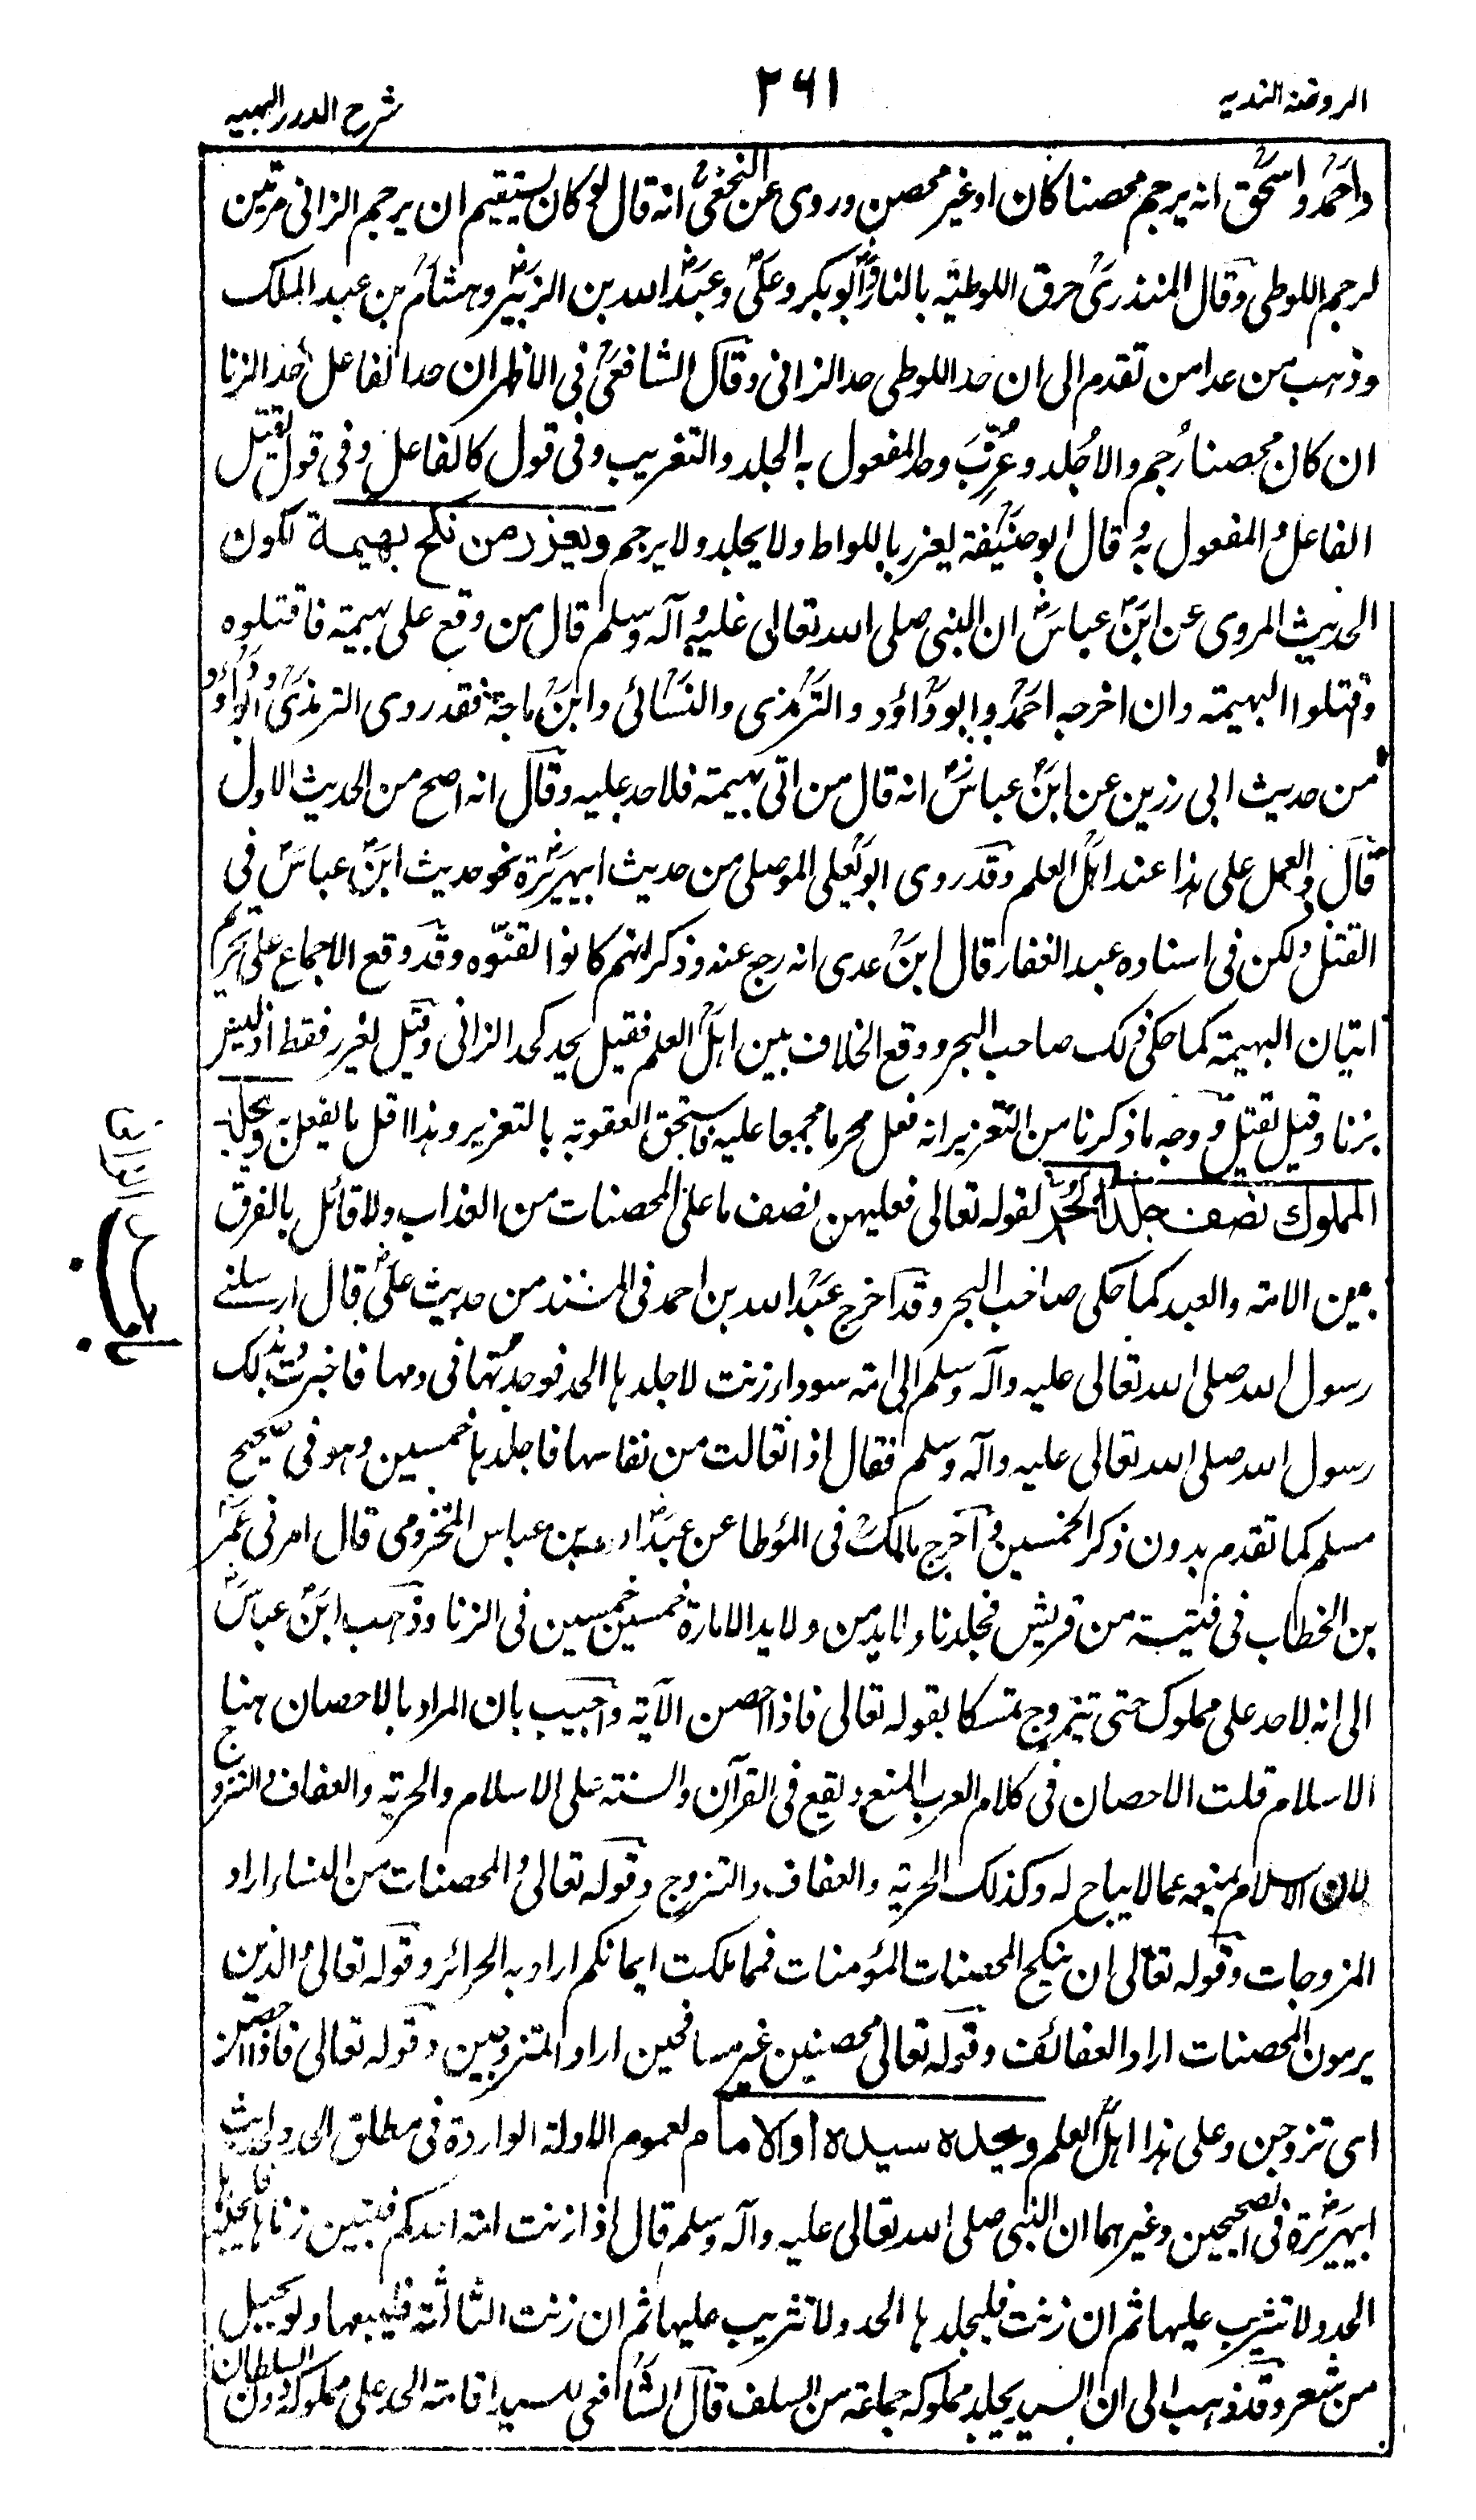 الروضة الندية
٣٦١
شرح الدرر البهية
واحمد واسحق انه يرجم محصنا كان او غير محصن وروى عن النخعي انه قال لو كان يستقيم ان يرجم الزاني مرتين
لرجم اللوطي وقال المنذري حرق اللوطية بالنار ابو بكر وعلي وعبد الله بن الزبير وهشام بن عبد الملك
وذهب من عدا من تقدم الى ان حد اللوطي حد الزاني وقال الشافعي في الاظهر ان حد الفاعل حد الزنا
ان كان محصنا رُجم والا جُلد وغُرِّبَ وحد المفعول به الجلد والتغريب وفي قول كالفاعل وفي قول يقتل
الفاعل والمفعول به وقال ابو حنيفة يعزر باللواط ولا يجلد ولا يرجم ويعزر من نكح بهيمة لكون
الحديث المروى عن ابن عباس ان النبي صلى الله تعالى عليه وآله وسلم قال من وقع على بهيمة فاقتلوه
واقتلوا البهيمة وان اخرجه احمد وابو داؤد والترمذي والنسائي وابن ماجة فقد روى الترمذي وابو داؤد
من حديث ابي رزين عن ابن عباس انه قال من اتى بهيمة فلا حد عليه وقال انه اصح من الحديث الاول
قال والعمل على هذا عند اهل العلم وقد روى ابو يعلى الموصلي من حديث ابي هريرة نحو حديث ابن عباس في
القتل ولكن في اسناده عبد الغفار قال ابن عدي انه رجع عنه وذكر انهم كانوا لقنوه وقد وقع الاجماع على تحريم
اتيان البهيمة كما حكى ذلك صاحب البحر ووقع الخلاف بين اهل العلم فقيل يحد كحد الزاني وقيل يعزر فقط اذ ليس
بزنا وقيل يقتل ووجه ما ذكرنا من التعزير انه فعل محرما مجمعا عليه فاستحق العقوبة بالتعزير وهذا اقل ما يفعل به ويجلد
المملوك نصف جلد الحر لقوله تعالى فعليهن نصف ما على المحصنات من العذاب ولا قائل بالفرق
بين الامة والعبد كما حكى صاحب البحر وقد اخرج عبد الله بن احمد في المسند من حديث علي قال ارسلني
رسول الله صلى الله تعالى عليه وآله وسلم الى امة سوداء زنت لاجلدها الحد فوجدتها في دمها فاخبرت بذلك
رسول الله صلى الله تعالى عليه وآله وسلم فقال اذا تعالت من نفاسها فاجلدها خمسين وهو في صحيح
مسلم كما تقدم بدون ذكر الخمسين واخرج مالك في المؤطا عن عبد الله بن عباس المخزومي قال امرني عمر
بن الخطاب في فتية من قريش فجلدنا ولايد من ولايد الامارة خمسين خمسين في الزنا وذهب ابن عباس
الى انه لا حد على مملوك حتى يتزوج تمسكا بقوله تعالى فاذا احصن الآية واجيب بان المراد بالاحصان هنا
الاسلام قلت الاحصان في كلام العرب المنع ويقع في القرآن والسنة على الاسلام والحرية والعفاف والتزوج
لان الاسلام يمنعه عما لا يباح له وكذلك الحرية والعفاف والتزوج وقوله تعالى والمحصنات من النساء اراد
المزوجات وقوله تعالى ان ينكح المحصنات المؤمنات فمما ملكت ايمانكم اراد به الحرائر وقوله تعالى والذين
يرمون المحصنات اراد العفائف وقوله تعالى محصنين غير مسافحين اراد المتزوجين وقوله تعالى فاذا احصن
اى تزوجن وعلى هذا اهل العلم ويحده سيده او الامام لعموم الادلة الواردة في مطلق الحد ولحديث
ابي هريرة في الصحيحين وغيرهما ان النبي صلى الله تعالى عليه وآله وسلم قال اذا زنت امة احدكم فتبين زناها فليجلدها
الحد ولا يثرب عليها ثم ان زنت فليجلدها الحد ولا تثريب عليها ثم ان زنت الثالثة فليبعها ولو بحبل
من شعر وقد ذهب الى ان السيد يجلد مملوكه جماعة من السلف قال الشافعي للسيد اقامة الحد على مملوكه دون السلطان